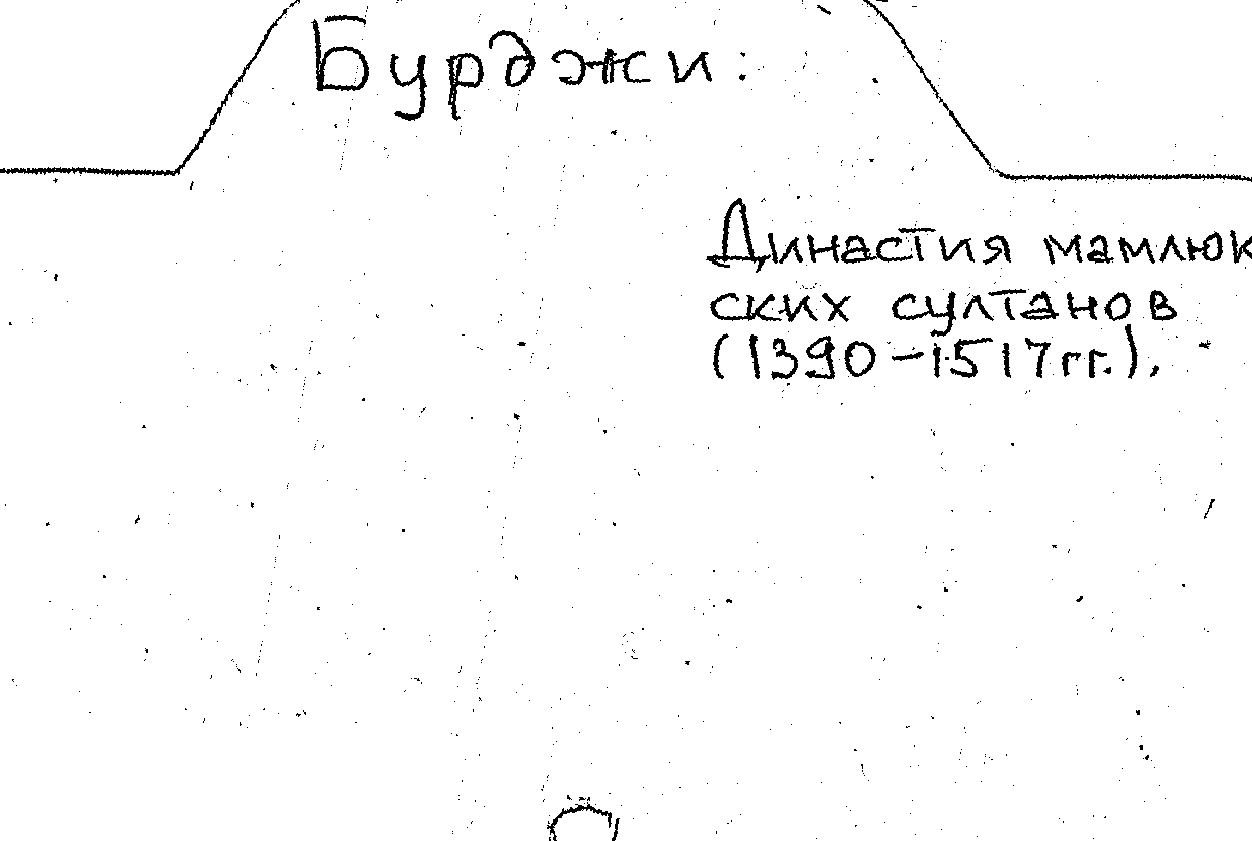 Бурджи:
Династия мамлюк
ских султанов
(1390-1517гг.).